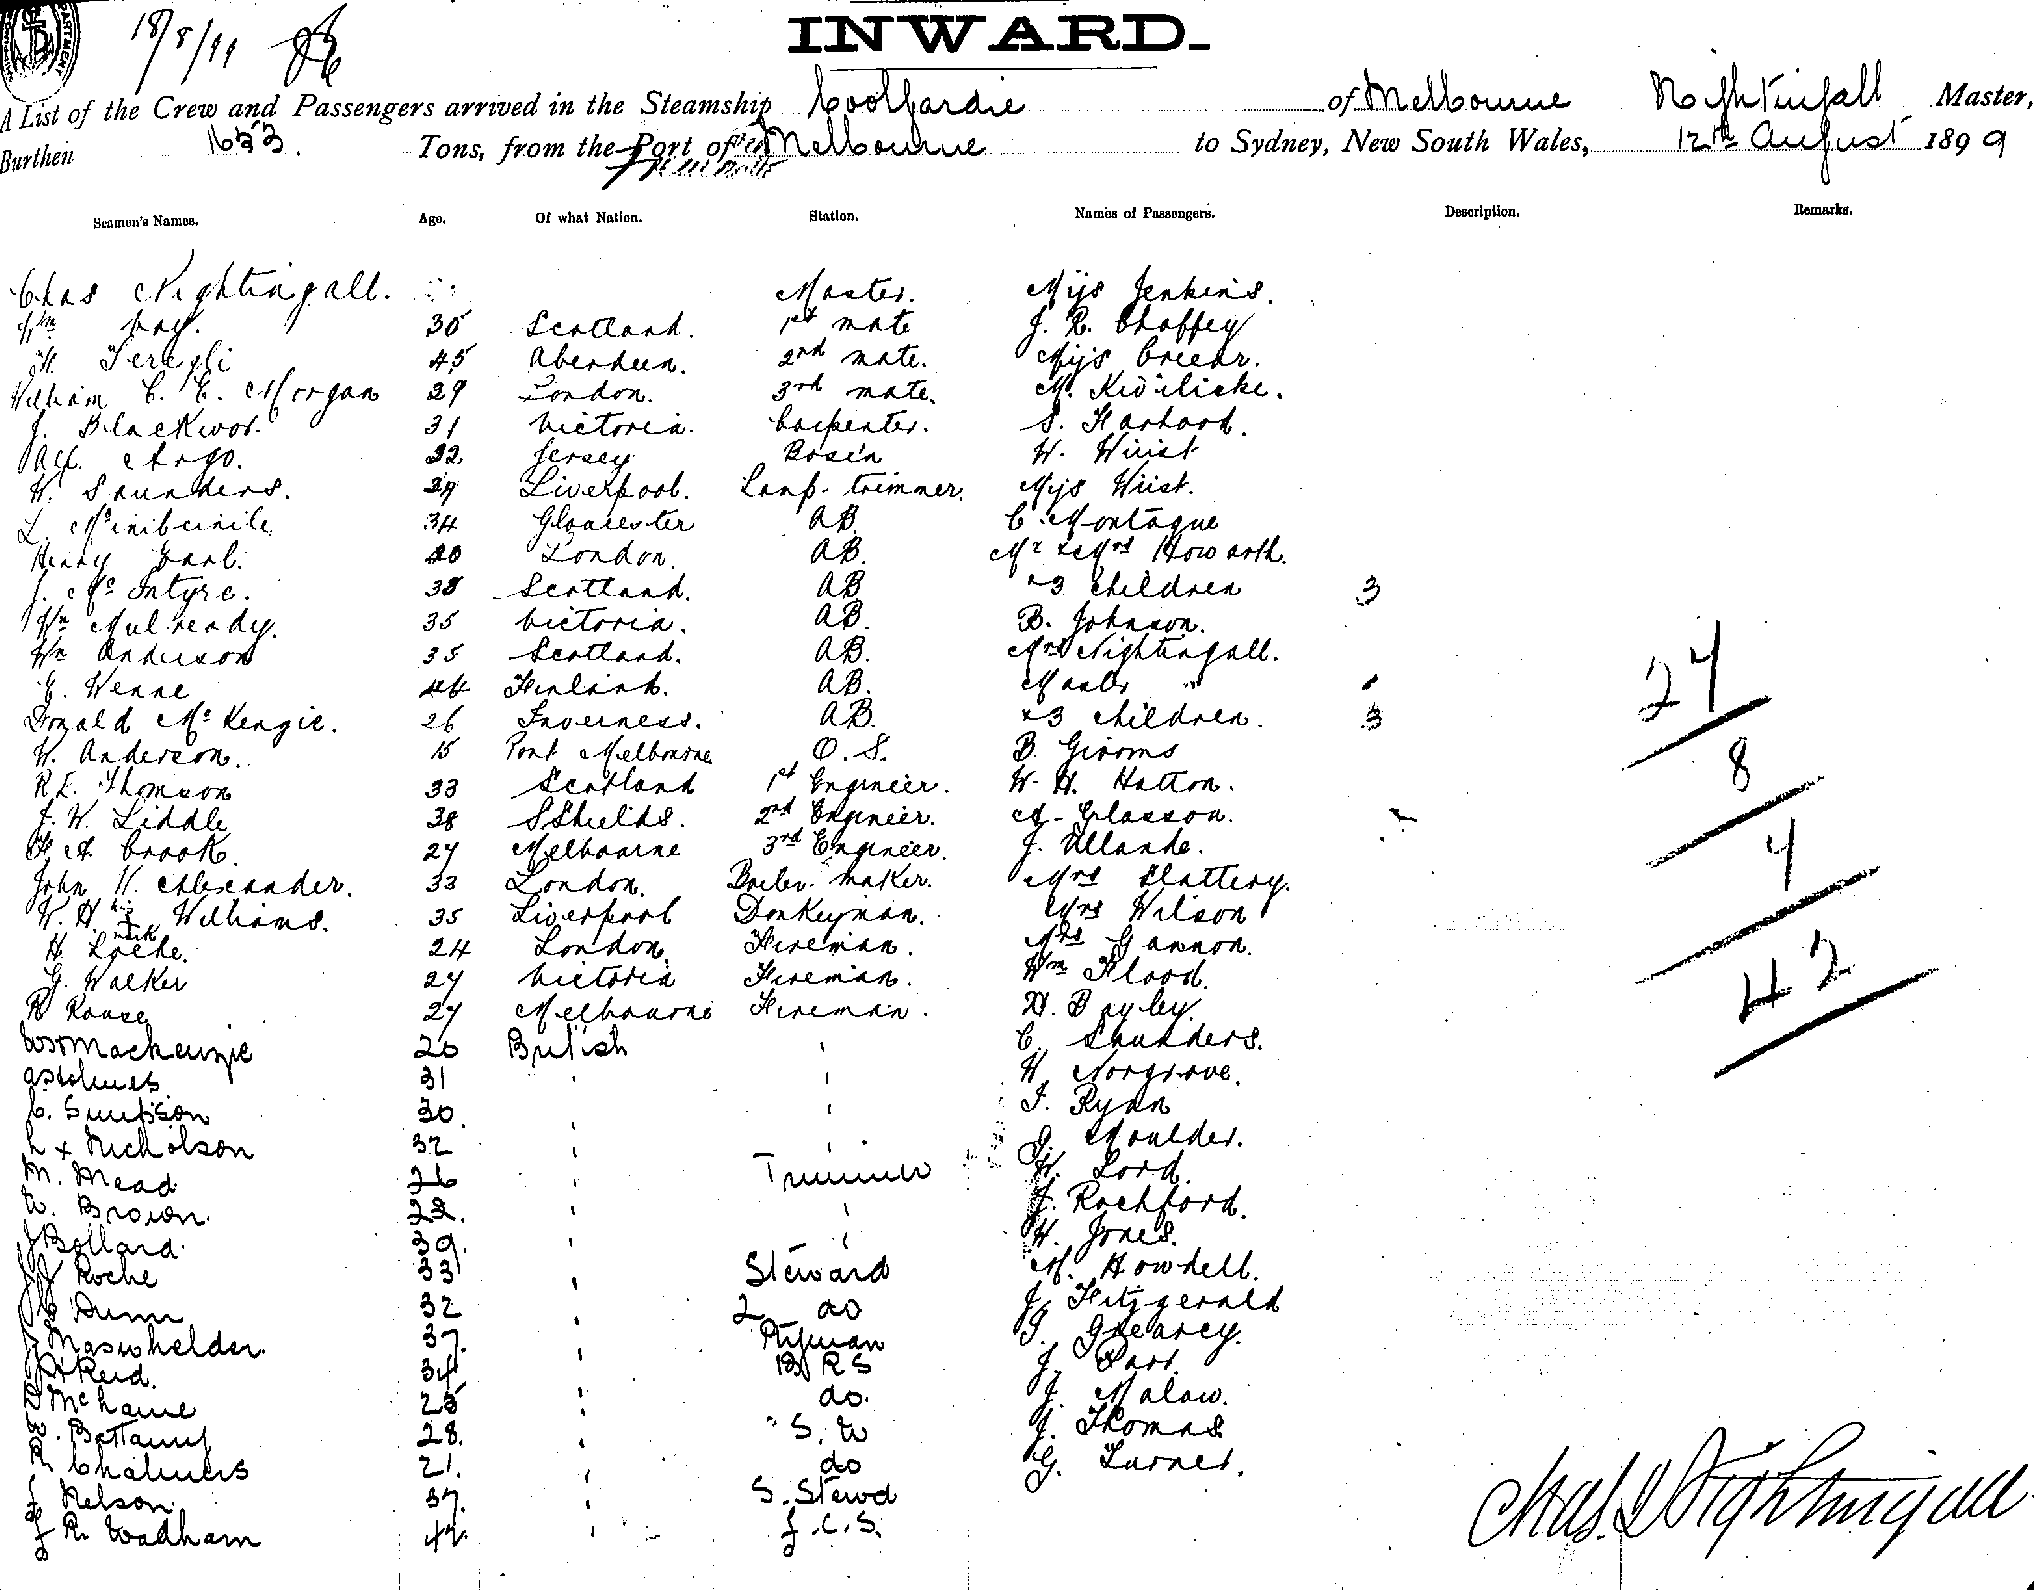 18/8/99
INWARD.
A List of the Crew and Passengers arrived in the Steamship Coolgardie of Melbourne Nightingall Master,
Burthen 1653. Tons, from the Port of Melbourne to Sydney, New South Wales, 12th August 1899
Seamen's Names. Age. Of what Nation. Station. Names of Passengers. Description. Remarks.
Chas Nightingall. Master. Miss Jenkins.
Wm 30 Scotland. 1st mate J. R. Chaffey
45 Aberdeen. 2nd mate. Miss Greear.
William C. E. Morgan 29 London. 3rd mate. M.
J. 31 Victoria. Carpenter. S. Harford.
Alf. Argo. 22 Jersey Bosun W. Wirst
W. Saunders. 29 Liverpool. Lamp-trimmer. Miss Wirst.
L. 34 Gloucester AB. C. Montague
Henry Earl. 20 London. AB. Mr & Mrs Howarth.
J. McIntyre. 38 Scotland. AB +3 children 3
Wm Mulready. 35 Victoria. AB. B. Johnson.
Wm Anderson 35 Scotland. AB. Mrs Nightingall.
E. Wenne 44 Finland. AB. Master "
Donald McKenzie. 26 Inverness. AB. +3 children. 3
W. Anderson. 15 Port Melbourne O. S. B. Grooms
R. E. Thomson 33 Scotland 1st Engineer. W. H. Hatton.
J. W. Liddle 38 S Shields. 2nd Engineer. A. Glasson.
F. A. Crook. 27 Melbourne 3rd Engineer. J. Ullande.
John H. Alexander. 33 London. Boiler maker. Mrs Slattery.
W. H. his mark Williams. 35 Liverpool Donkeyman. Mrs Wilson
H. Locke. 24 London. Fireman. Mrs Gannon.
G. Walker 27 Victoria Fireman. Wm Flood.
R Rouse 27 Melbourne Fireman. H. Bayley.
W Mackenzie 20 British C. Saunders.
31 W. Norgrove.
C. Simpson 30. J. Ryan
L x Nicholson 32 G. Moulder.
M. Mead 26 Trimmer W. Lord.
W. Brown. 22. J. Rochford.
J Bollard. 39. H. Jones.
J J Roche 33 Steward M. Howdell.
C Dunn 32 2 do J. Fitzgerald
J 37. Pyman G. Gpearcy.
Reid. 34 B R S J. Parr.
25 do. J. Malaw.
W. Bettany 28. S. W J. Thomas
R. Chalmers 21. do G. Turner.
J Nelson. 37. S. Stewd
J R. Wadham 42. F.C.S.
24
8
4
42
Chas. Nightingall